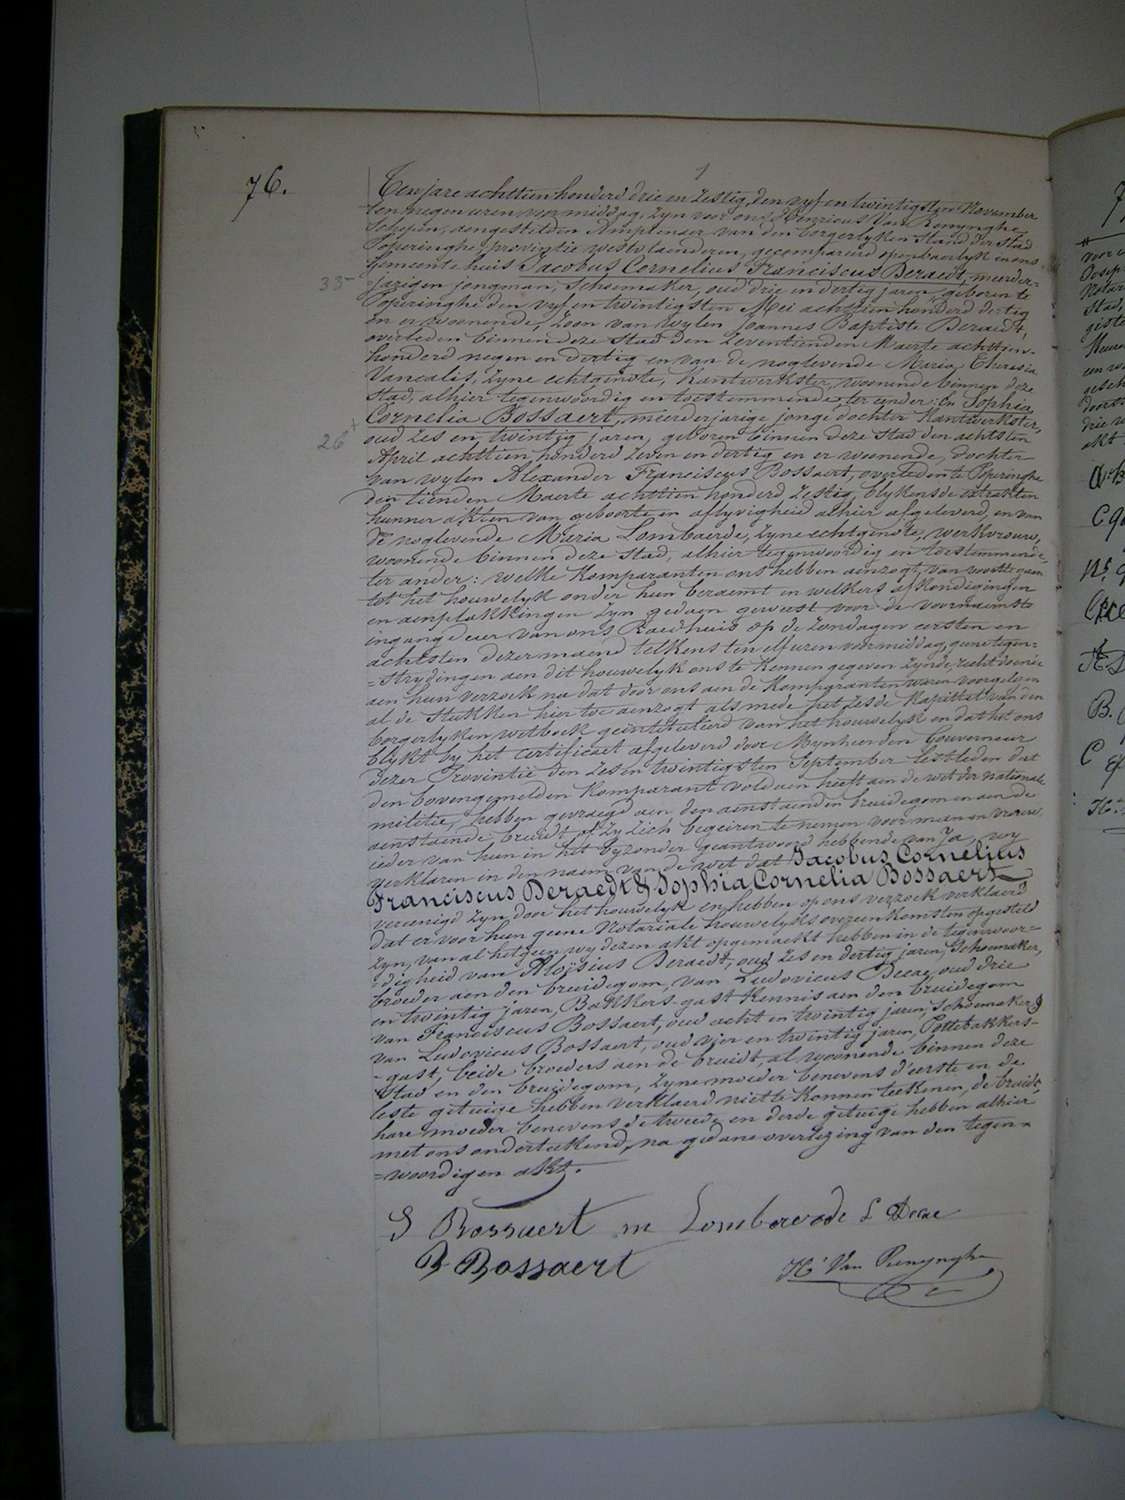 76.
Ten jare achttien honderd drie en zestig, den vyf en twintigsten November
ten negen uren voormiddag, zyn voor ons Henricus Van Renynghe
Schepen, aengestelden Amptenaer van den borgerlyken stand der stad
Poperinghe, provintie westvlaenderen, gecompareerd openbaerlyk in ons
Gemeentehuis Jacobus Cornelius Franciscus Beraedt, meerder-
33 -
jarigen jongman, Schoemaker, oud drie en dertig jaren, geboren te
Poperinghe den vyf en twintigsten Mei achttien honderd dertig
en er woonende, zoon van wylen Joannes Baptiste Beraedt,
overleden binnen deze Stad den zeventienden Maerte achttien-
honderd negen en dertig en van de noglevende Maria Theresia
Vancalis, zyne echtgenote, Kantwerkster, woonende binnen deze
Stad, alhier tegenwoordig en toestemmende ter eender: En Sophia
Cornelia Bossaert, meerderjarige jonge dochter Kantwerkster,
26 +
oud zes en twintig jaren, geboren binnen deze Stad den achtsten
April achttien honderd zeven en dertig en er woonende, dochter
van wylen Alexander Franciscus Bossaert, overleden te Poperinghe
den tienden Maerte achttien honderd zestig, blykens de extrakten
hunner akten van geboorte en aflyvigheid alhier afgeleverd, en van
de noglevende Maria Lombaerde, zyne echtgenote, werkvrouw,
woonende binnen deze Stad, alhier tegenwoordig en toestemmende
ter ander: welke Komparanten ons hebben aenzogt, van voort te gaen
tot het houwelyk onder hun beraemt en welkers afkondigingen
en aenplakkingen zyn gedaen geweest voor de voornaemste
ingangdeur van ons Raedhuis op de zondagen eersten en
achtsten dezer maend telkens ten elf uren voormiddag, geene tegen=
=strydingen aen dit houwelyk ons te Kennen gegeven zynde, recht doende
aen hun verzoek na dat door ons aen de Komparanten waren voorgelezen
al de Stukken hier toe aenzogt als mede het zesde Kapittel van den
borgerlyken wetboek geïntituleerd van het houwelyk en dat het ons
blykt by het certificaet afgeleverd door Mynheer den Gouverneur
dezer Provintie den zes en twintigsten September lestleden dat
den bovengemelden Komparant voldaen heeft aen de wet der nationale
militie, hebben gevraegd aen den aenstaenden bruidegom en aen de
aenstaende bruidt of zy zich begeiren te nemen voor man en vrouw
ieder van hun in het byzonder geantwoord hebbende van Ja, wy
verklaren in den naem van de wet dat Jacobus Cornelius
Franciscus Beraedt & Sophia Cornelia Bossaert
vereenigd zyn door het houwelyk en hebben op ons verzoek verklaerd
dat er voor hun geene Notariale houwelyksovereenkomsten opgesteld
zyn, van al hetgeen wy dezen akt opgemaekt hebben in de tegenwoor=
=digheid van Aloïsius Beraedt, oud zes en dertig jaren, Schoenmaker,
broeder aen den bruidegom, van Ludovicus Decae, oud drie
en twintig jaren, Bakkers-gast Kennis aen den bruidegom
van Franciscus Bossaert, oud acht en twintig jaren, Schoemaker, &
van Ludovicus Bossaert, oud vier en twintig jaren, Pottebakkers-
-gast, beide broeders aen de bruidt, al woonende binnen deze
Stad en den bruidegom, zyne moeder benevens d'eerste en de
leste getuige hebben verklaerd niet te Konnen teekenen, de bruidt
hare moeder benevens de tweede en derde getuige hebben alhier
met ons onderteekend, na gedane overlezing van den tegen=
=woordigen akt.
S Bossaert m Lombaerde L Decae
B. Bossaert
H.i Van Renynghe